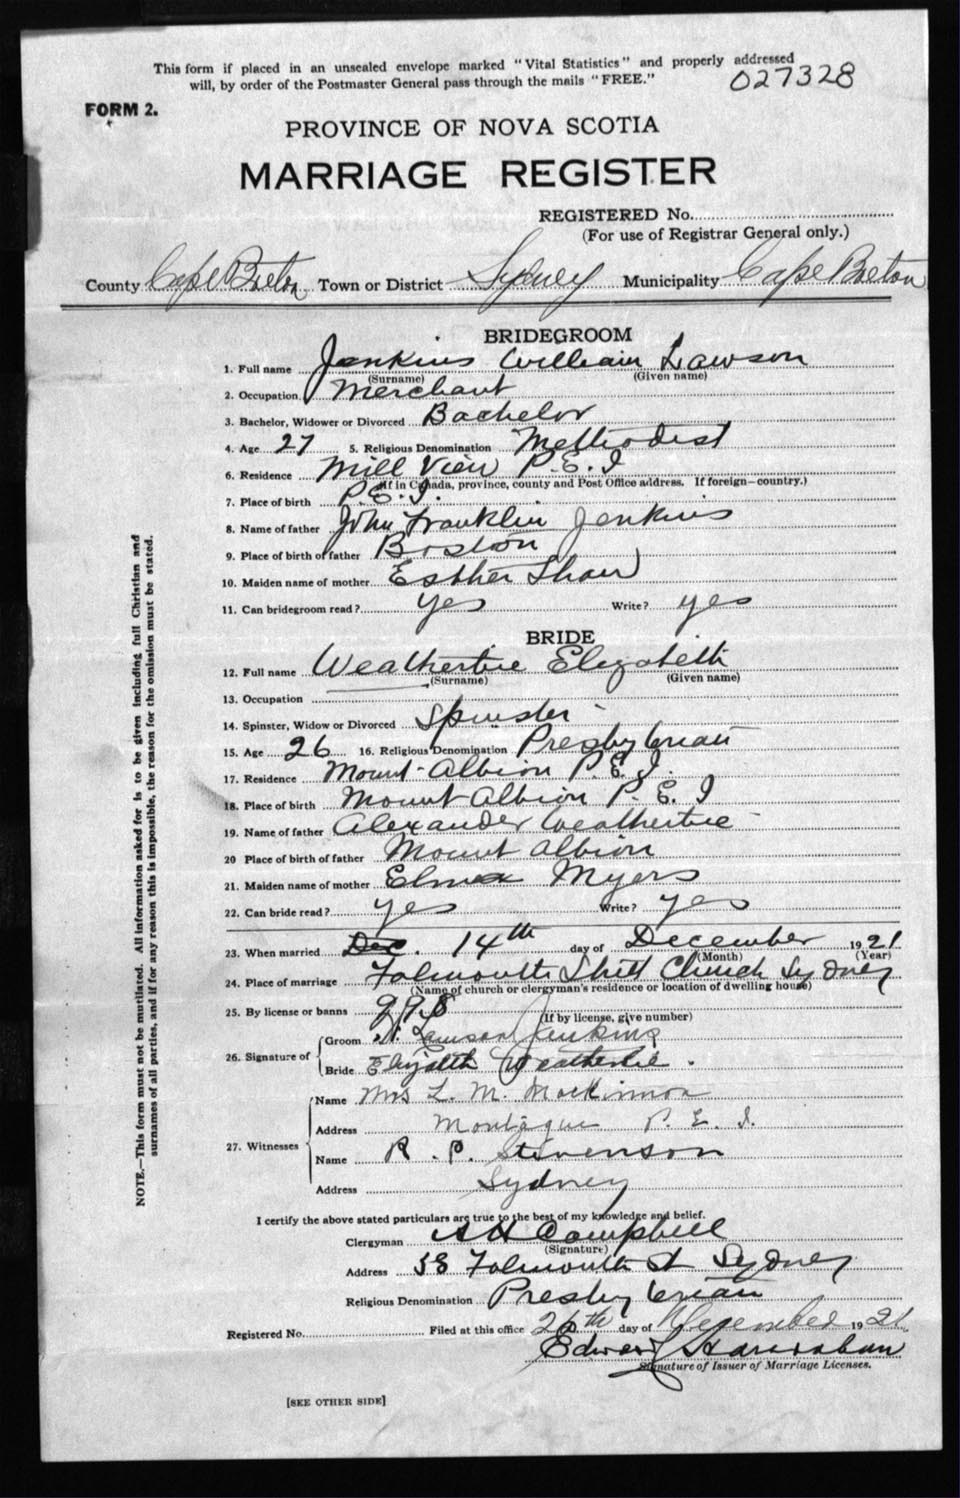 This form if placed in an unsealed envelope marked "Vital Statistics" and properly addressed
will, by order of the Postmaster General pass through the mails "FREE."
027328
FORM 2.
PROVINCE OF NOVA SCOTIA
MARRIAGE REGISTER
REGISTERED No.
(For use of Registrar General only.)
County Cape Breton Town or District Sydney Municipality Cape Breton
BRIDEGROOM
1. Full name Jenkins William Lawson
(Surname) (Given name)
2. Occupation Merchant
3. Bachelor, Widower or Divorced Bachelor
4. Age 27 5. Religious Denomination Methodist
6. Residence Mill View P.E.I
(If in Canada, province, county and Post Office address. If foreign—country.)
7. Place of birth P.E.I.
8. Name of father John Franklin Jenkins
9. Place of birth of father Boston
10. Maiden name of mother Esther Shaw
11. Can bridegroom read? yes Write? yes
BRIDE
12. Full name Weatherbie Elizabeth
(Surname) (Given name)
13. Occupation
14. Spinster, Widow or Divorced Spinster
15. Age 26 16. Religious Denomination Presbyterian
17. Residence Mount Albion P.E.I.
18. Place of birth Mount Albion P.E.I
19. Name of father Alexander Weatherbie
20 Place of birth of father Mount Albion
21. Maiden name of mother Myers
22. Can bride read? yes Write? yes
23. When married Dec. 14th day of December 1921
(Month) (Year)
24. Place of marriage Falmouth Street Church Sydney
(Name of church or clergyman's residence or location of dwelling house)
25. By license or banns
(If by license, give number)
26. Signature of Groom W. Lawson Jenkins
Bride Elizabeth Weatherbie.
27. Witnesses Name Mrs L. M. MacKinnon
Address Montague P.E.I.
Name R. P. Stevenson
Address Sydney
I certify the above stated particulars are true to the best of my knowledge and belief.
Clergyman A H Campbell
(Signature)
Address 58 Falmouth St Sydney
Religious Denomination Presbyterian
Registered No. Filed at this office 26th day of December 1921
Edward
Signature of Issuer of Marriage Licenses.
[SEE OTHER SIDE]
NOTE.—This form must not be mutilated. All information asked for is to be given including full Christian and
surnames of all parties, and if for any reason this is impossible, the reason for the omission must be stated.